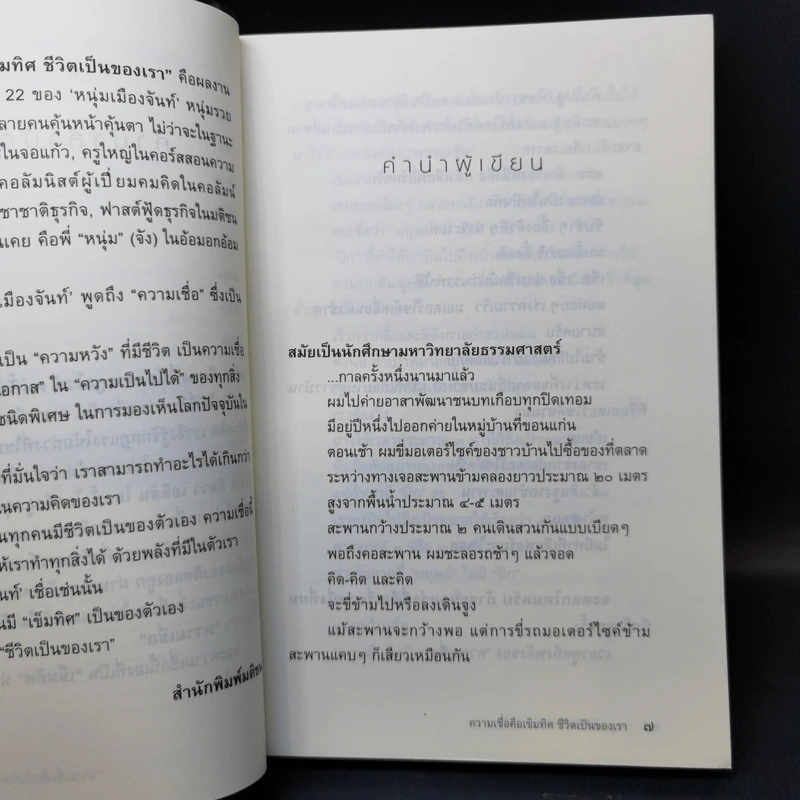 มทิศ ชีวิตเป็นของเรา” คือผลงาน
22 ของ ‘หนุ่มเมืองจันท์’ หนุ่มรวย
ลายคนคุ้นหน้าคุ้นตา ไม่ว่าจะในฐานะ
ในจอแก้ว, ครูใหญ่ในคอร์สสอนความ
คอลัมนิสต์ผู้เปี่ยมคมคิดในคอลัมน์
ชาชาติธุรกิจ, ฟาสต์ฟู้ดธุรกิจในมติชน
นเคย คือพี่ “หนุ่ม” (จัง) ในอ้อมอกอ้อม
มืองจันท์’ พูดถึง “ความเชื่อ” ซึ่งเป็น
เป็น “ความหวัง” ที่มีชีวิต เป็นความเชื่อ
อกาส” ใน “ความเป็นไปได้” ของทุกสิ่ง
ชนิดพิเศษ ในการมองเห็นโลกปัจจุบันใน
ที่มั่นใจว่า เราสามารถทำอะไรได้เกินกว่า
นความคิดของเรา
นทุกคนมีชีวิตเป็นของตัวเอง ความเชื่อนี้
ให้เราทำทุกสิ่งได้ ด้วยพลังที่มีในตัวเรา
นท์’ เชื่อเช่นนั้น
นมี “เข็มทิศ” เป็นของตัวเอง
“ชีวิตเป็นของเรา”
สำนักพิมพ์มติชน
คำนำผู้เขียน
สมัยเป็นนักศึกษามหาวิทยาลัยธรรมศาสตร์
...กาลครั้งหนึ่งนานมาแล้ว
ผมไปค่ายอาสาพัฒนาชนบทเกือบทุกปิดเทอม
มีอยู่ปีหนึ่งไปออกค่ายในหมู่บ้านที่ขอนแก่น
ตอนเช้า ผมขี่มอเตอร์ไซค์ของชาวบ้านไปซื้อของที่ตลาด
ระหว่างทางเจอสะพานข้ามคลองยาวประมาณ ๒๐ เมตร
สูงจากพื้นน้ำประมาณ ๔-๕ เมตร
สะพานกว้างประมาณ ๒ คนเดินสวนกันแบบเบียดๆ
พอถึงคอสะพาน ผมชะลอรถช้าๆ แล้วจอด
คิด-คิด และคิด
จะขี่ข้ามไปหรือลงเดินจูง
แม้สะพานจะกว้างพอ แต่การขี่รถมอเตอร์ไซค์ข้าม
สะพานแคบๆ ก็เสียวเหมือนกัน
ความเชื่อคือเข็มทิศ ชีวิตเป็นของเรา ๗